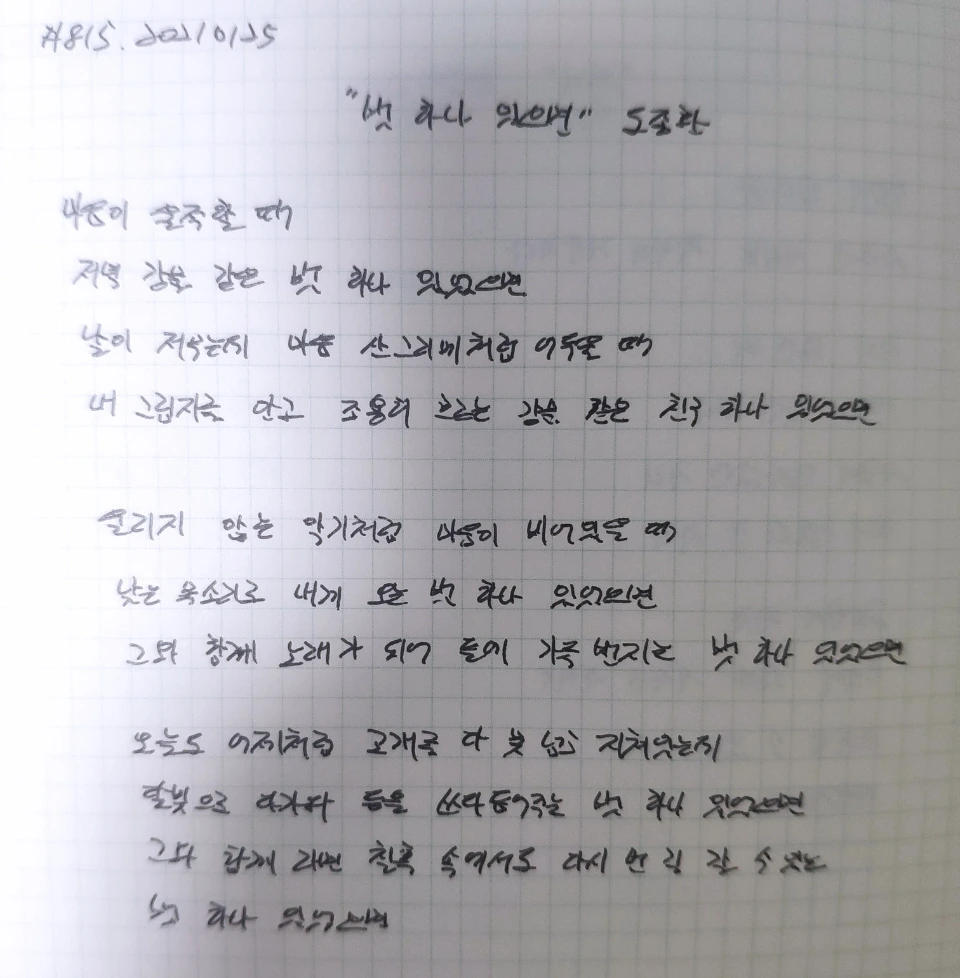 #815. 20210125
"벗 하나 있으면" 도종환
마음이 울적할 때
저녁 강물 같은 벗 하나 있었으면
날이 저무는데 마음 산그리메처럼 어두울 때
내 그림자를 안고 조용히 흐르는 강물 같은 친구 하나 있었으면
울리지 않는 악기처럼 마음이 비어있을 때
낮은 목소리로 내게 오는 벗 하나 있었으면
그와 함께 노래가 되어 들에 가득 번지는 벗 하나 있었으면
오늘도 어제처럼 고개를 다 못 넘고 지쳐있는데
달빛으로 다가와 등을 쓰다듬어주는 벗 하나 있었으면
그와 함께 라면 칠흑 속에서도 다시 먼 길 갈 수 있는
벗 하나 있었으면